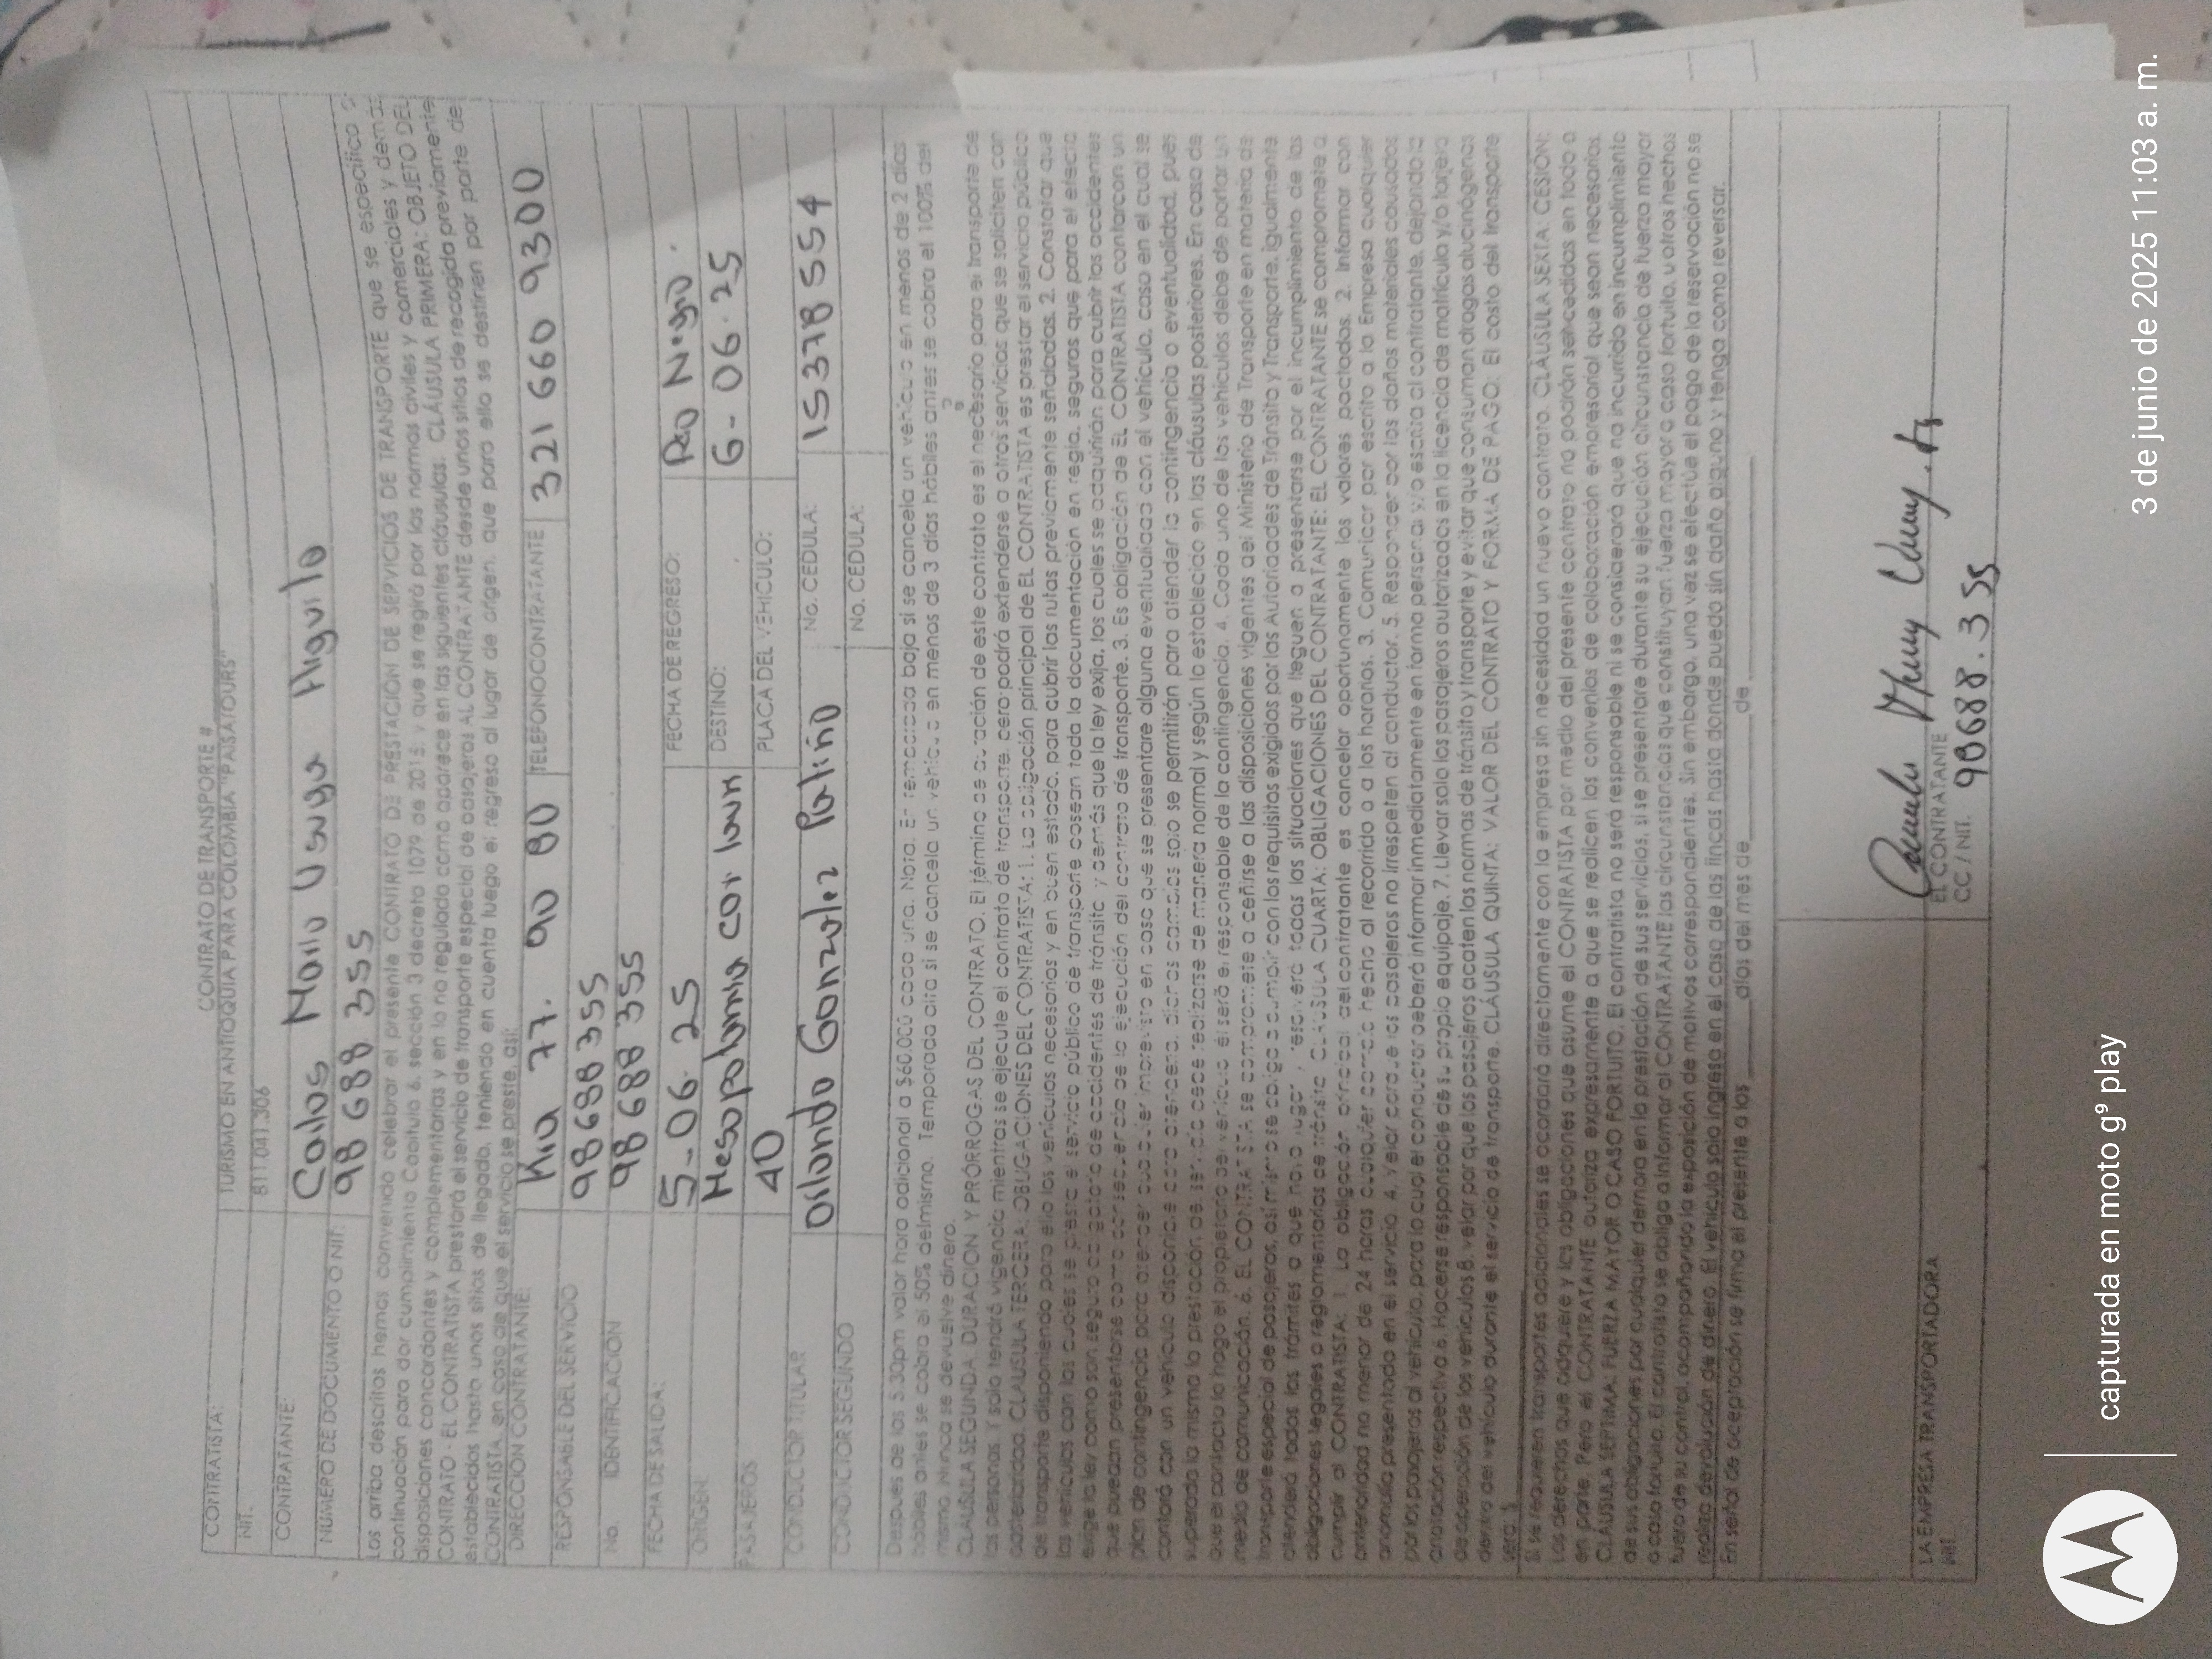 CONTRATO DE TRANSPORTE #
CONTRATISTA: TURISMO EN ANTIOQUIA PARA COLOMBIA "PAISATOURS"
NIT. 811.041.306
CONTRATANTE Carlos Mario Usuga Higuita
NUMERO DE DOCUMENTO O NIT: 98 688 355
Los arriba descritos hemos convenido celebrar el presente CONTRATO DE PRESTACIÓN DE SERVICIOS DE TRANSPORTE que se especifica a
continuación para dar cumplimiento Capitulo 6, sección 3 decreto 1079 de 2015, y que se regirá por las normas civiles y comerciales y demás
disposiciones concordantes y complementarias y en lo no regulado como aparece en las siguientes cláusulas: CLÁUSULA PRIMERA: OBJETO DEL
CONTRATO - EL CONTRATISTA prestará el servicio de transporte especial de pasajeros AL CONTRATANTE desde unos sitios de recogida previamente
establecidos hasta unos sitios de llegada, teniendo en cuenta luego el regreso al lugar de origen, que para ello se destinen por parte del
CONTRATISTA, en caso de que el servicio se preste, así:
DIRECCIÓN CONTRATANTE: Kra 77. 90 80 TELEFONO CONTRATANTE 321 660 9300
RESPONSABLE DEL SERVICIO 98688355
No. IDENTIFICACION 98 688 355
FECHA DE SALIDA: 5-06-25 FECHA DE REGRESO: Rio Negro.
ORIGEN: Mesopotamia DESTINO: 6-06-25
PASAJEROS 40 PLACA DEL VEHICULO:
CONDUCTOR TITULAR Orlando Gonzalez Patiño No. CEDULA: 15378554
CONDUCTOR SEGUNDO No. CEDULA:
Despues de las 5:30pm valor hora adicional a $60.000 cada una. Nota. En temporada baja si se cancela un vehículo en menos de 2 días
hábiles antes se cobra el 50% del mismo. Temporada alta si se cancela un vehículo en menos de 3 días hábiles antes se cobra el 100% del
mismo. Nunca se devuelve dinero.
CLÁUSULA SEGUNDA: DURACION Y PRÓRROGAS DEL CONTRATO. El término de duración de este contrato es el necesario para el transporte de
las personas. Y solo tendrá vigencia mientras se ejecute el contrato de transporte, pero podrá extenderse a otros servicios que se soliciten con
posterioridad. CLAUSULA TERCERA: OBLIGACIONES DEL CONTRATISTA: 1. La obligación principal de EL CONTRATISTA es prestar el servicio público
de transporte disponiendo para ello los vehículos necesarios y en buen estado, para cubrir las rutas previamente señaladas. 2. Constatar que
los vehículos con los cuales se presta el servicio público de transporte posean toda la documentación en regla, seguros que para el efecto
exige la ley como son seguro obligatorio de accidentes de tránsito y demás que la ley exija, los cuales se adquirirán para cubrir los accidentes
que puedan presentarse como consecuencia de la ejecución del contrato de transporte. 3. Es obligación de EL CONTRATISTA contar con un
plan de contingencia para atender cualquier imprevisto en caso que se presentare alguna eventualidad con el vehículo, caso en el cual se
contará con un vehículo disponible para atenderla, dichos cambios solo se permitirán para atender la contingencia o eventualidad, pues
superada la misma la prestación de servicio debe realizarse de manera normal y según lo establecido en las cláusulas posteriores. En caso de
que el contacto lo haga el propietario del vehículo él será el responsable de la contingencia. 4. Cada uno de los vehículos debe de portar un
medio de comunicación. 6. EL CONTRATISTA se compromete a ceñirse a las disposiciones vigentes del Ministerio de Transporte en materia de
transporte especial de pasajeros, así mismo se obliga a cumplir con los requisitos exigidos por las Autoridades de Tránsito y Transporte, igualmente
atenderá todos los trámites a que haya lugar y resolverá todas las situaciones que lleguen a presentarse por el incumplimiento de las
obligaciones legales o reglamentarias de tránsito. CLÁUSULA CUARTA: OBLIGACIONES DEL CONTRATANTE: EL CONTRATANTE se compromete a
cumplir al CONTRATISTA: 1. La obligación principal del contratante es cancelar oportunamente los valores pactados. 2. Informar con
anterioridad no menor de 24 horas cualquier cambio hecho al recorrido o a los horarios. 3. Comunicar por escrito a la Empresa cualquier
anomalía presentada en el servicio. 4. Velar porque los pasajeros no irrespeten al conductor. 5. Responder por los daños materiales causados
por los pasajeros al vehículo, para lo cual el conductor deberá informar inmediatamente en forma personal y/o escrita al contratante, dejando la
anotación respectiva. 6. Hacerse responsable de su propio equipaje. 7. Llevar solo los pasajeros autorizados en la licencia de matricula y/o tarjeta
de operación de los vehículos 8. velar por que los pasajeros acaten las normas de tránsito y transporte y evitar que consuman drogas alucinógenas
dentro del vehículo durante el servicio de transporte. CLÁUSULA QUINTA: VALOR DEL CONTRATO Y FORMA DE PAGO: El costo del transporte
será: $
Si se requieren transportes adicionales se acordará directamente con la empresa sin necesidad un nuevo contrato. CLÁUSULA SEXTA: CESIÓN:
Los derechos que adquiere y las obligaciones que asume el CONTRATISTA por medio del presente contrato no podrán ser cedidas en todo o
en parte. Pero el CONTRATANTE autoriza expresamente a que se realicen los convenios de colaboración empresarial que sean necesarios.
CLÁUSULA SEPTIMA: FUERZA MAYOR O CASO FORTUITO. El contratista no será responsable ni se considerará que ha incurrido en incumplimiento
de sus obligaciones por cualquier demora en la prestación de sus servicios, si se presentare durante su ejecución circunstancia de fuerza mayor
o caso fortuito. El contratista se obliga a informar al CONTRATANTE las circunstancias que constituyan fuerza mayor o caso fortuito, u otros hechos
fuera de su control, acompañando la exposición de motivos correspondientes. Sin embargo, una vez se efectúe el pago de la reservación no se
realiza devolución de dinero. El vehículo solo ingresa en el caso de las fincas hasta donde pueda sin daño alguno y tenga como reversar.
En señal de aceptación se firma el presente a los ____ días del mes de ____ de ____
LA EMPRESA TRANSPORTADORA EL CONTRATANTE
NIT. CC / NIT. 98688.355
capturada en moto g⁹ play
3 de junio de 2025 11:03 a. m.